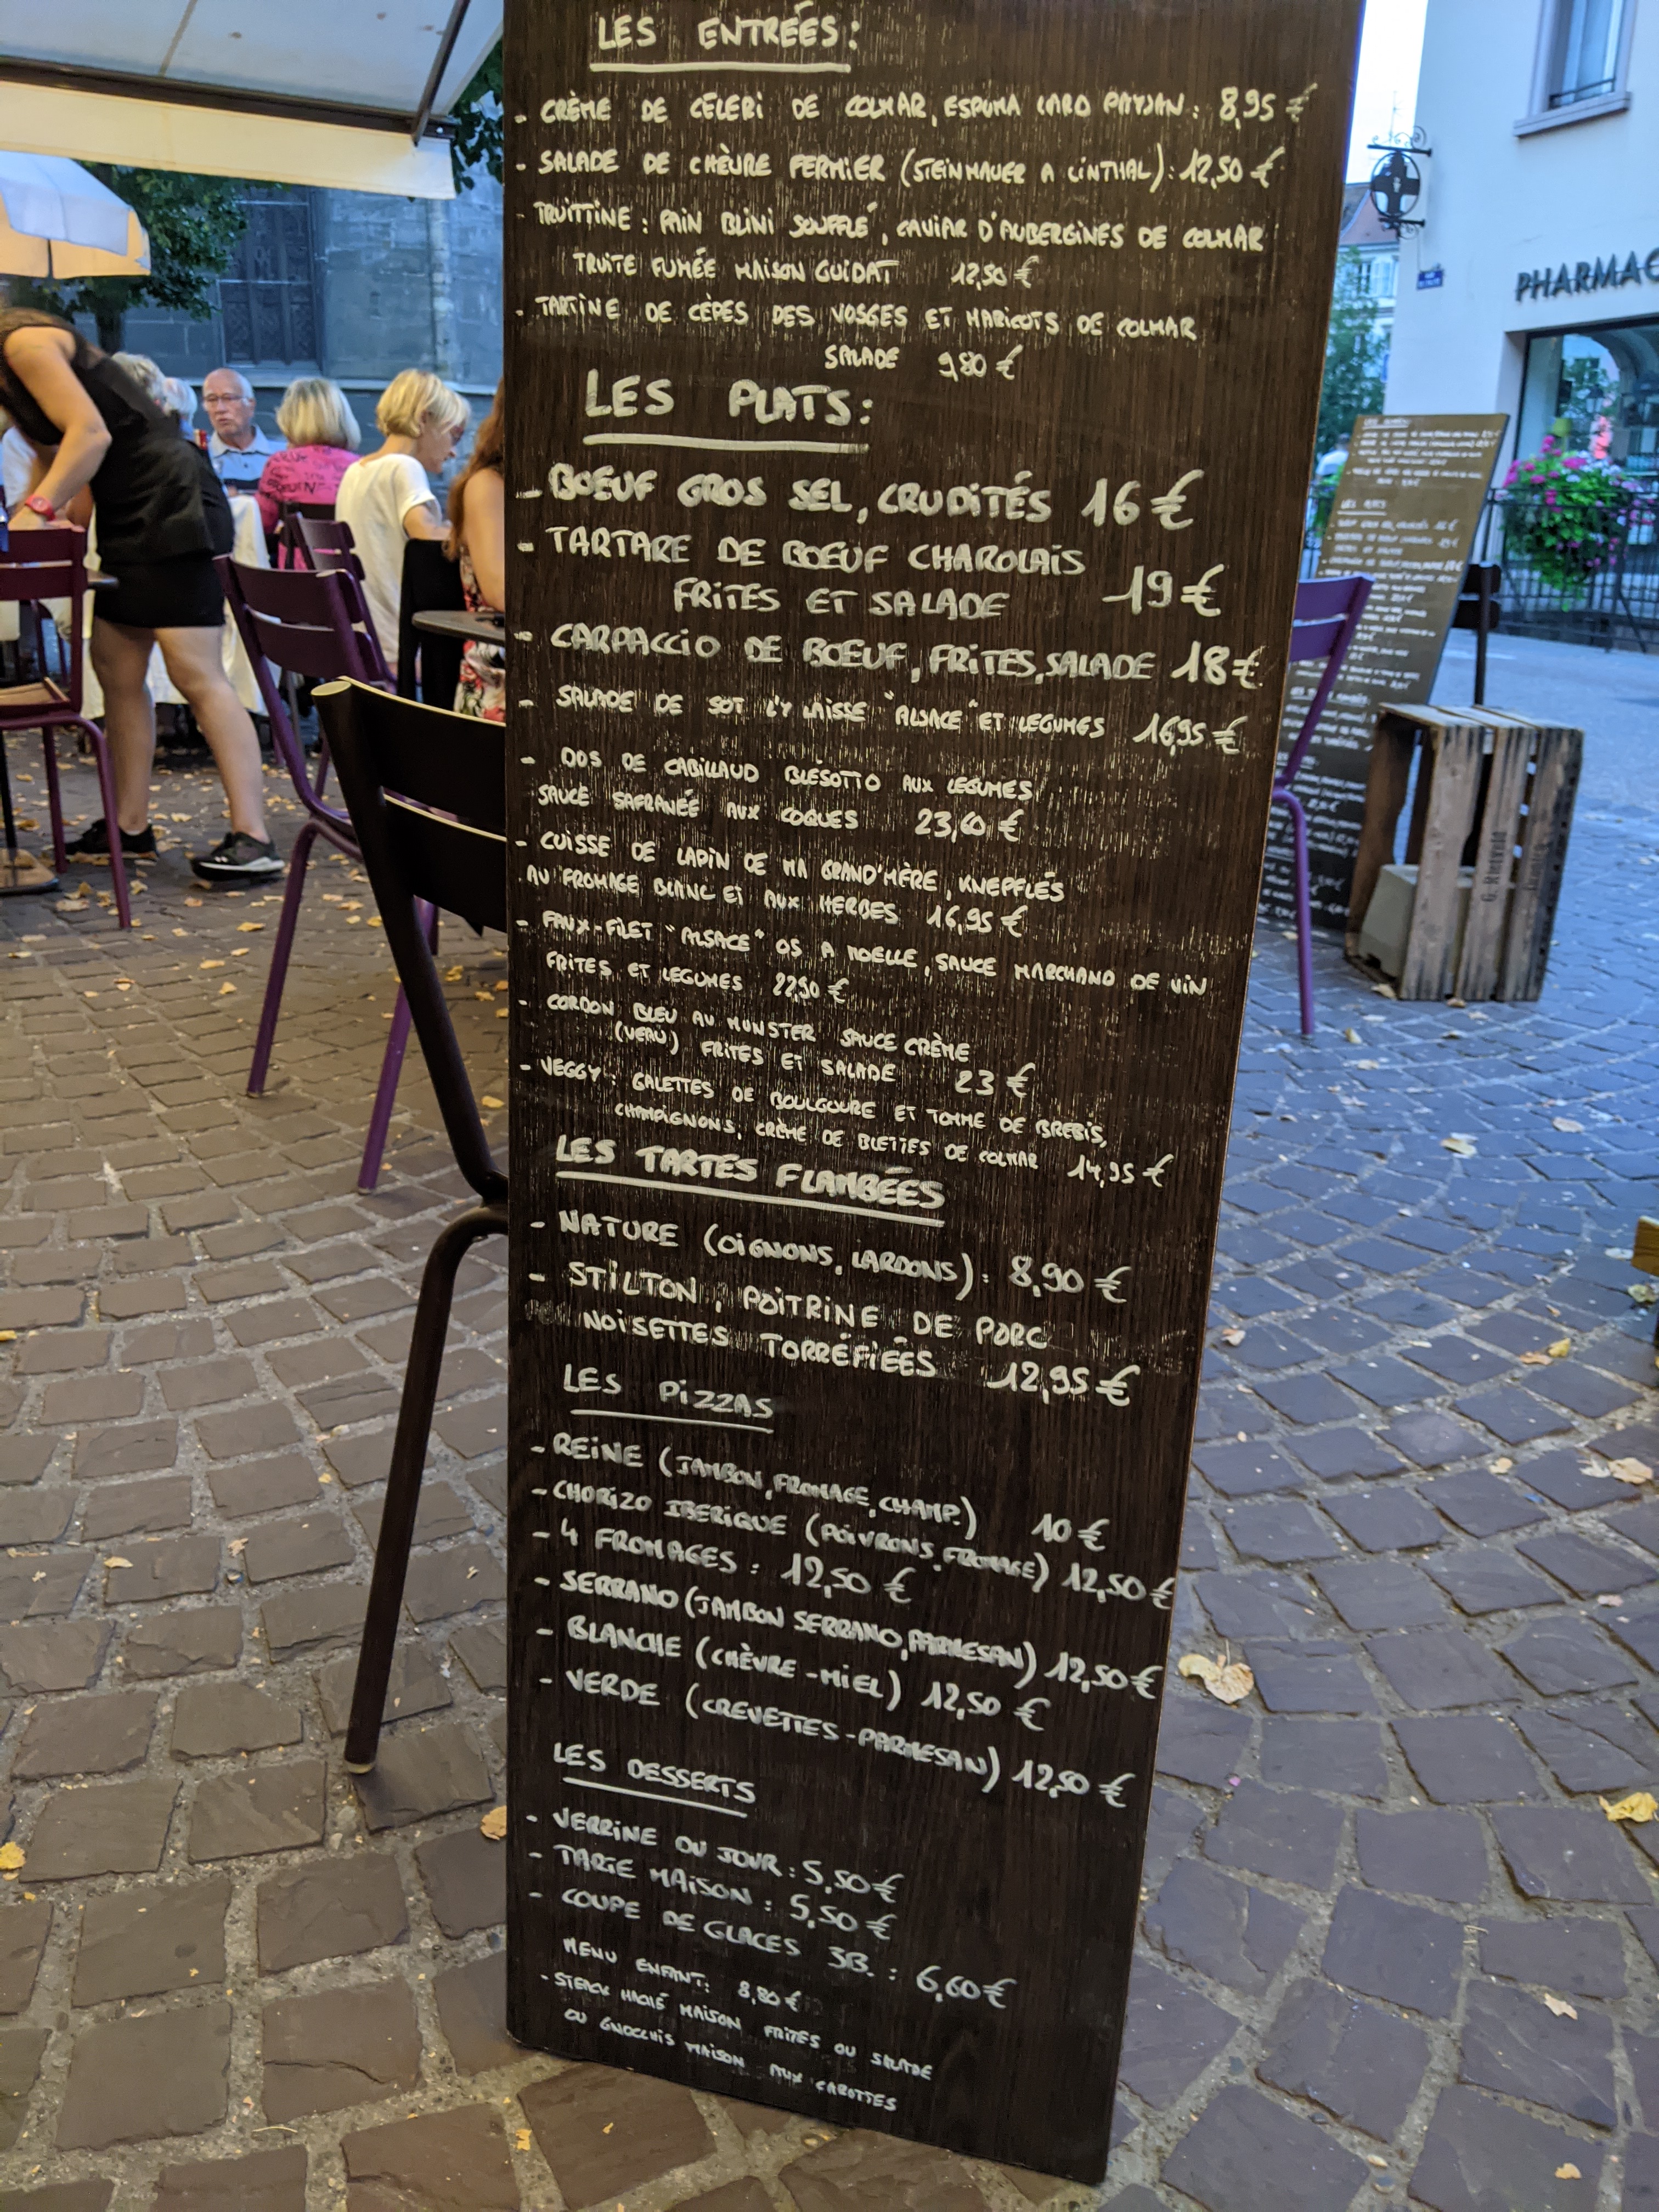 LES ENTRÉES:
- CRÈME DE CÉLERI DE COLMAR, ESPUMA LARD PAYSAN: 8,95 €
- SALADE DE CHÈVRE FERMIER (STEINMAUER A LINTHAL): 12,50 €
- TRUITTINE: PAIN BLINI SOUFFLÉ, CAVIAR D'AUBERGINES DE COLMAR
TRUITE FUMÉE MAISON GUIDAT 12,50 €
- TARTINE DE CÈPES DES VOSGES ET HARICOTS DE COLMAR
SALADE 9,80 €
LES PLATS:
- BOEUF GROS SEL, CRUDITÉS 16 €
- TARTARE DE BOEUF CHAROLAIS
FRITES ET SALADE 19 €
- CARPACCIO DE BOEUF, FRITES, SALADE 18 €
- SALADE DE SOT L'Y LAISSE "ALSACE" ET LEGUMES 16,95 €
- DOS DE CABILLAUD BLÉSOTTO AUX LEGUMES
SAUCE SAFRANÉE AUX COQUES 23,60 €
- CUISSE DE LAPIN DE MA GRAND'MÈRE, KNEPFLÉS
AU FROMAGE BLANC ET AUX HERBES 16,95 €
- FAUX-FILET "ALSACE" OS A MOELLE, SAUCE MARCHAND DE VIN
FRITES ET LEGUMES 22,50 €
- CORDON BLEU AU MUNSTER SAUCE CRÈME
(VEAU) FRITES ET SALADE 23 €
- VEGGY: GALETTES DE BOULGOURE ET TOMME DE BREBIS,
CHAMPIGNONS, CRÈME DE BLETTES DE COLMAR 14,95 €
LES TARTES FLAMBÉES
- NATURE (OIGNONS, LARDONS): 8,90 €
- STILTON, POITRINE DE PORC
NOISETTES TORRÉFIÉES 12,95 €
LES PIZZAS
- REINE (JAMBON, FROMAGE, CHAMP.) 10 €
- CHORIZO IBERIQUE (POIVRONS, FROMAGE) 12,50 €
- 4 FROMAGES: 12,50 €
- SERRANO (JAMBON SERRANO, PARMESAN) 12,50 €
- BLANCHE (CHÈVRE-MIEL) 12,50 €
- VERDE (CREVETTES-PARMESAN) 12,50 €
LES DESSERTS
- VERRINE DU JOUR: 5,50 €
- TARTE MAISON: 5,50 €
- COUPE DE GLACES 3B.: 6,60 €
MENU ENFANT: 8,80 €
- STEACK HACHÉ MAISON FRITES OU SALADE
OU GNOCCHIS MAISON AUX CAROTTES
PHARMAC